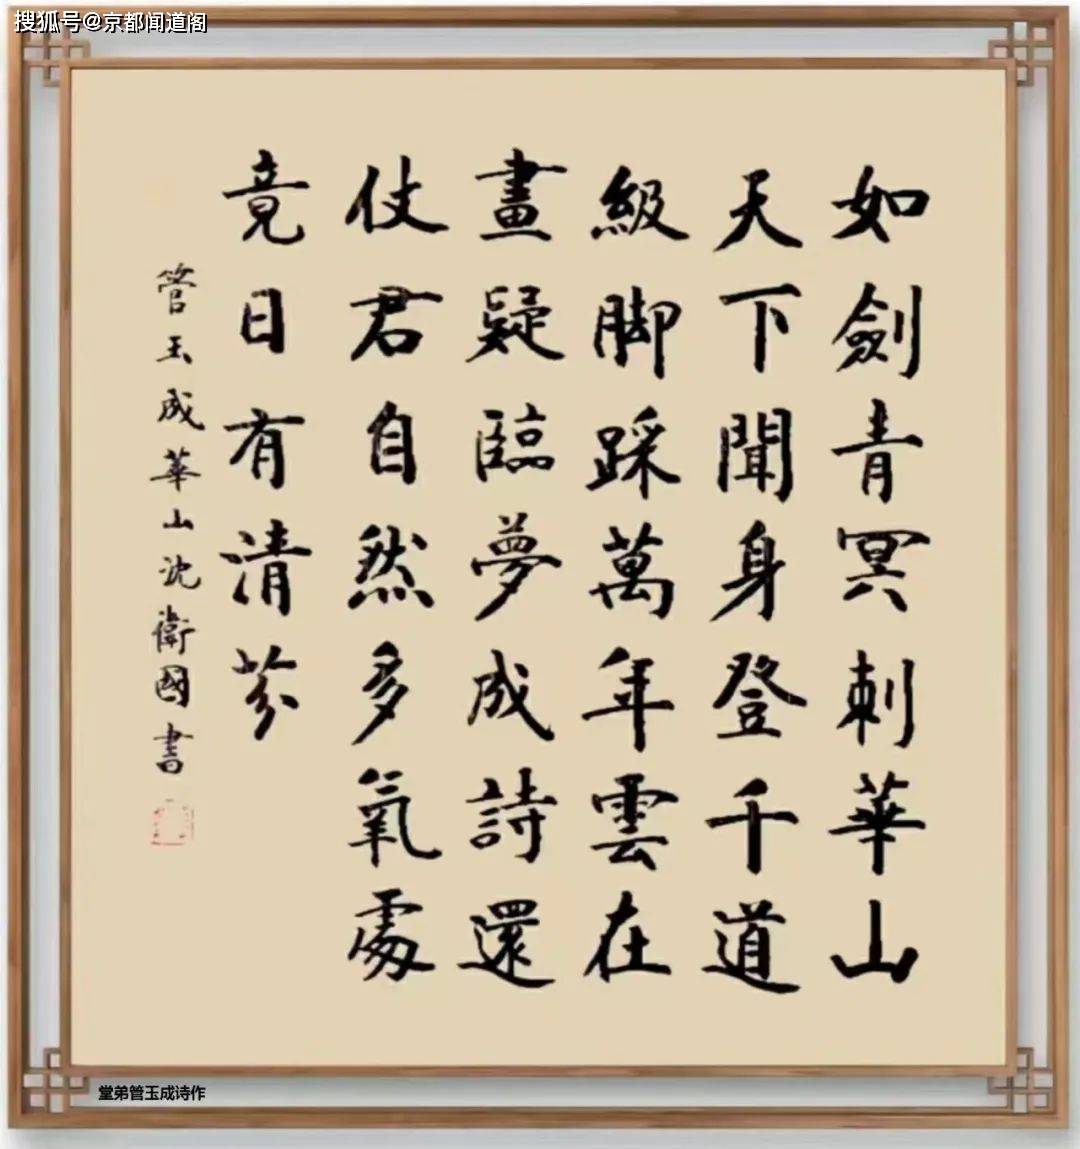 搜狐号@京都闻道阁
如劍青冥刺華山
天下聞身登千道
級脚踩萬年雲在
畫疑臨夢成詩還
仗君自然多氧處
竟日有清芬
管玉成華山沈衛國書
堂弟管玉成诗作